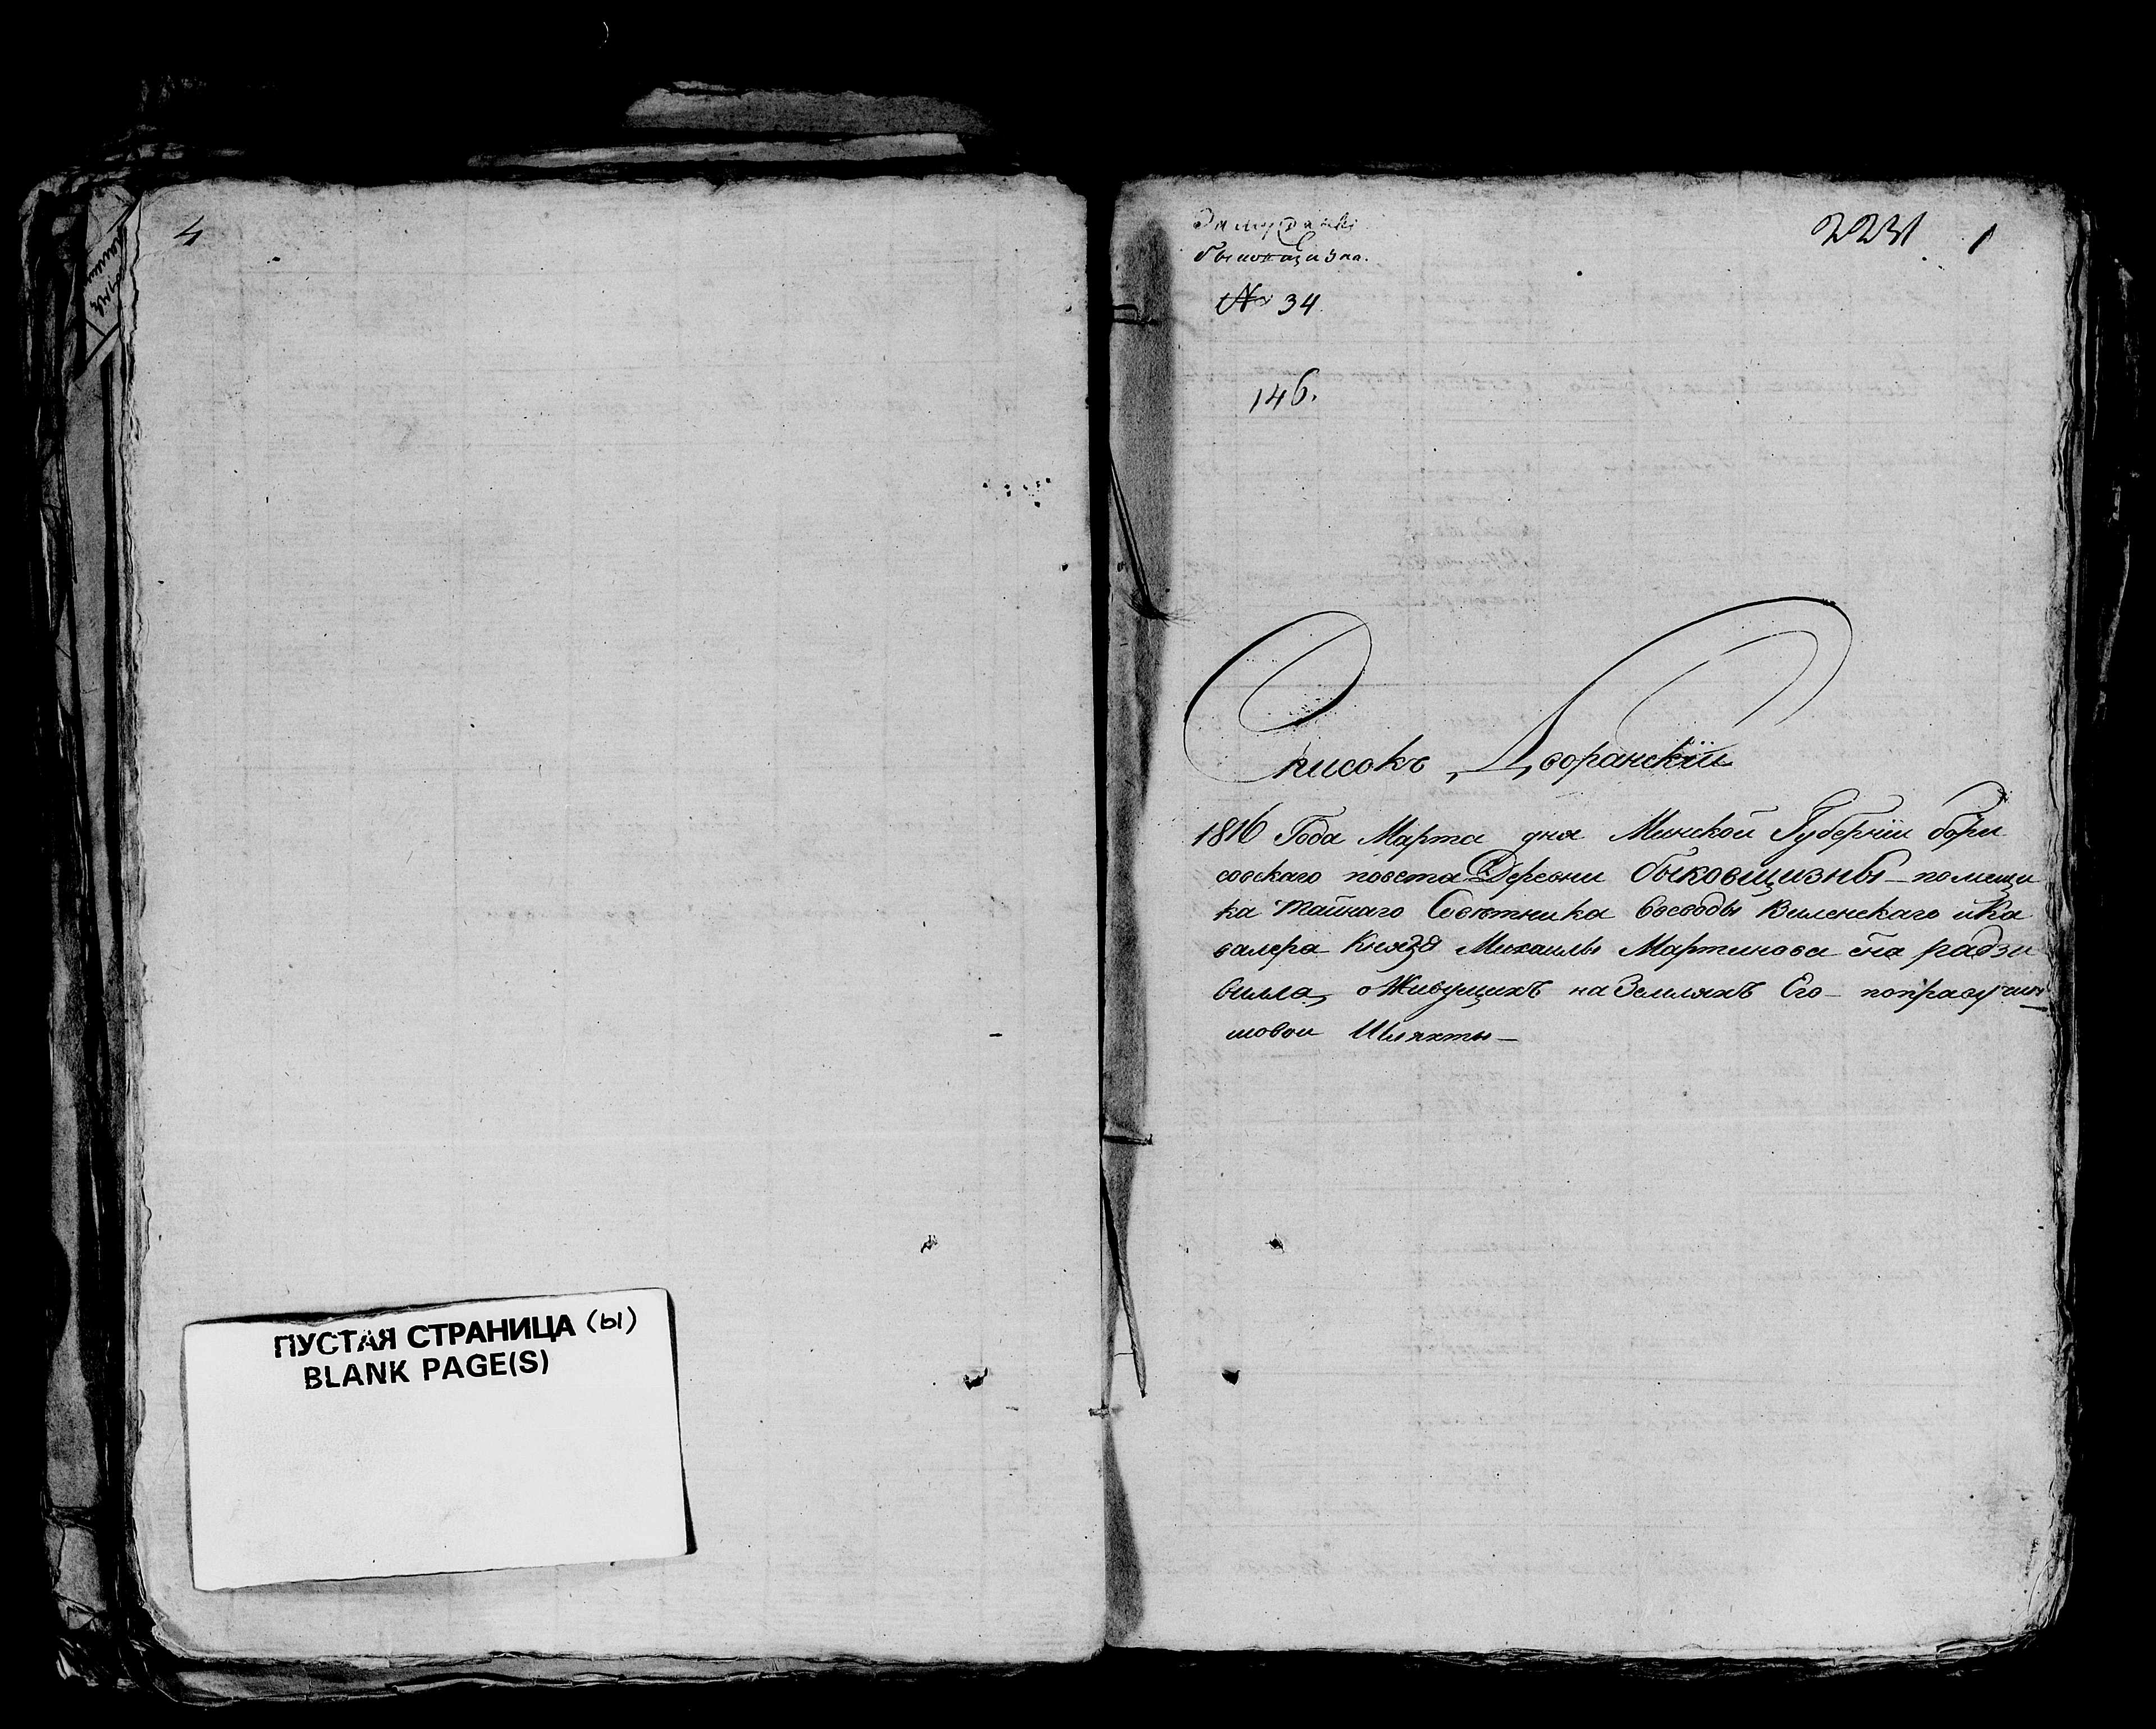 4
ПУСТАЯ СТРАНИЦА (Ы)
BLANK PAGE(S)
2231 1
быковщизна.
№ 34
146.
Списокъ Дворанскіи
1816 Года Марта дня Минской Губерніи бори
совскаго повета Деревни быковщизны - помещи
ка Тайнаго Советника Воеводы Виленскаго и Ка
валера Князя Михаилы Мартинова сна радзи
вилла, о Живущихъ на Земляхъ Его - поправу чин
шовои Шляхты -